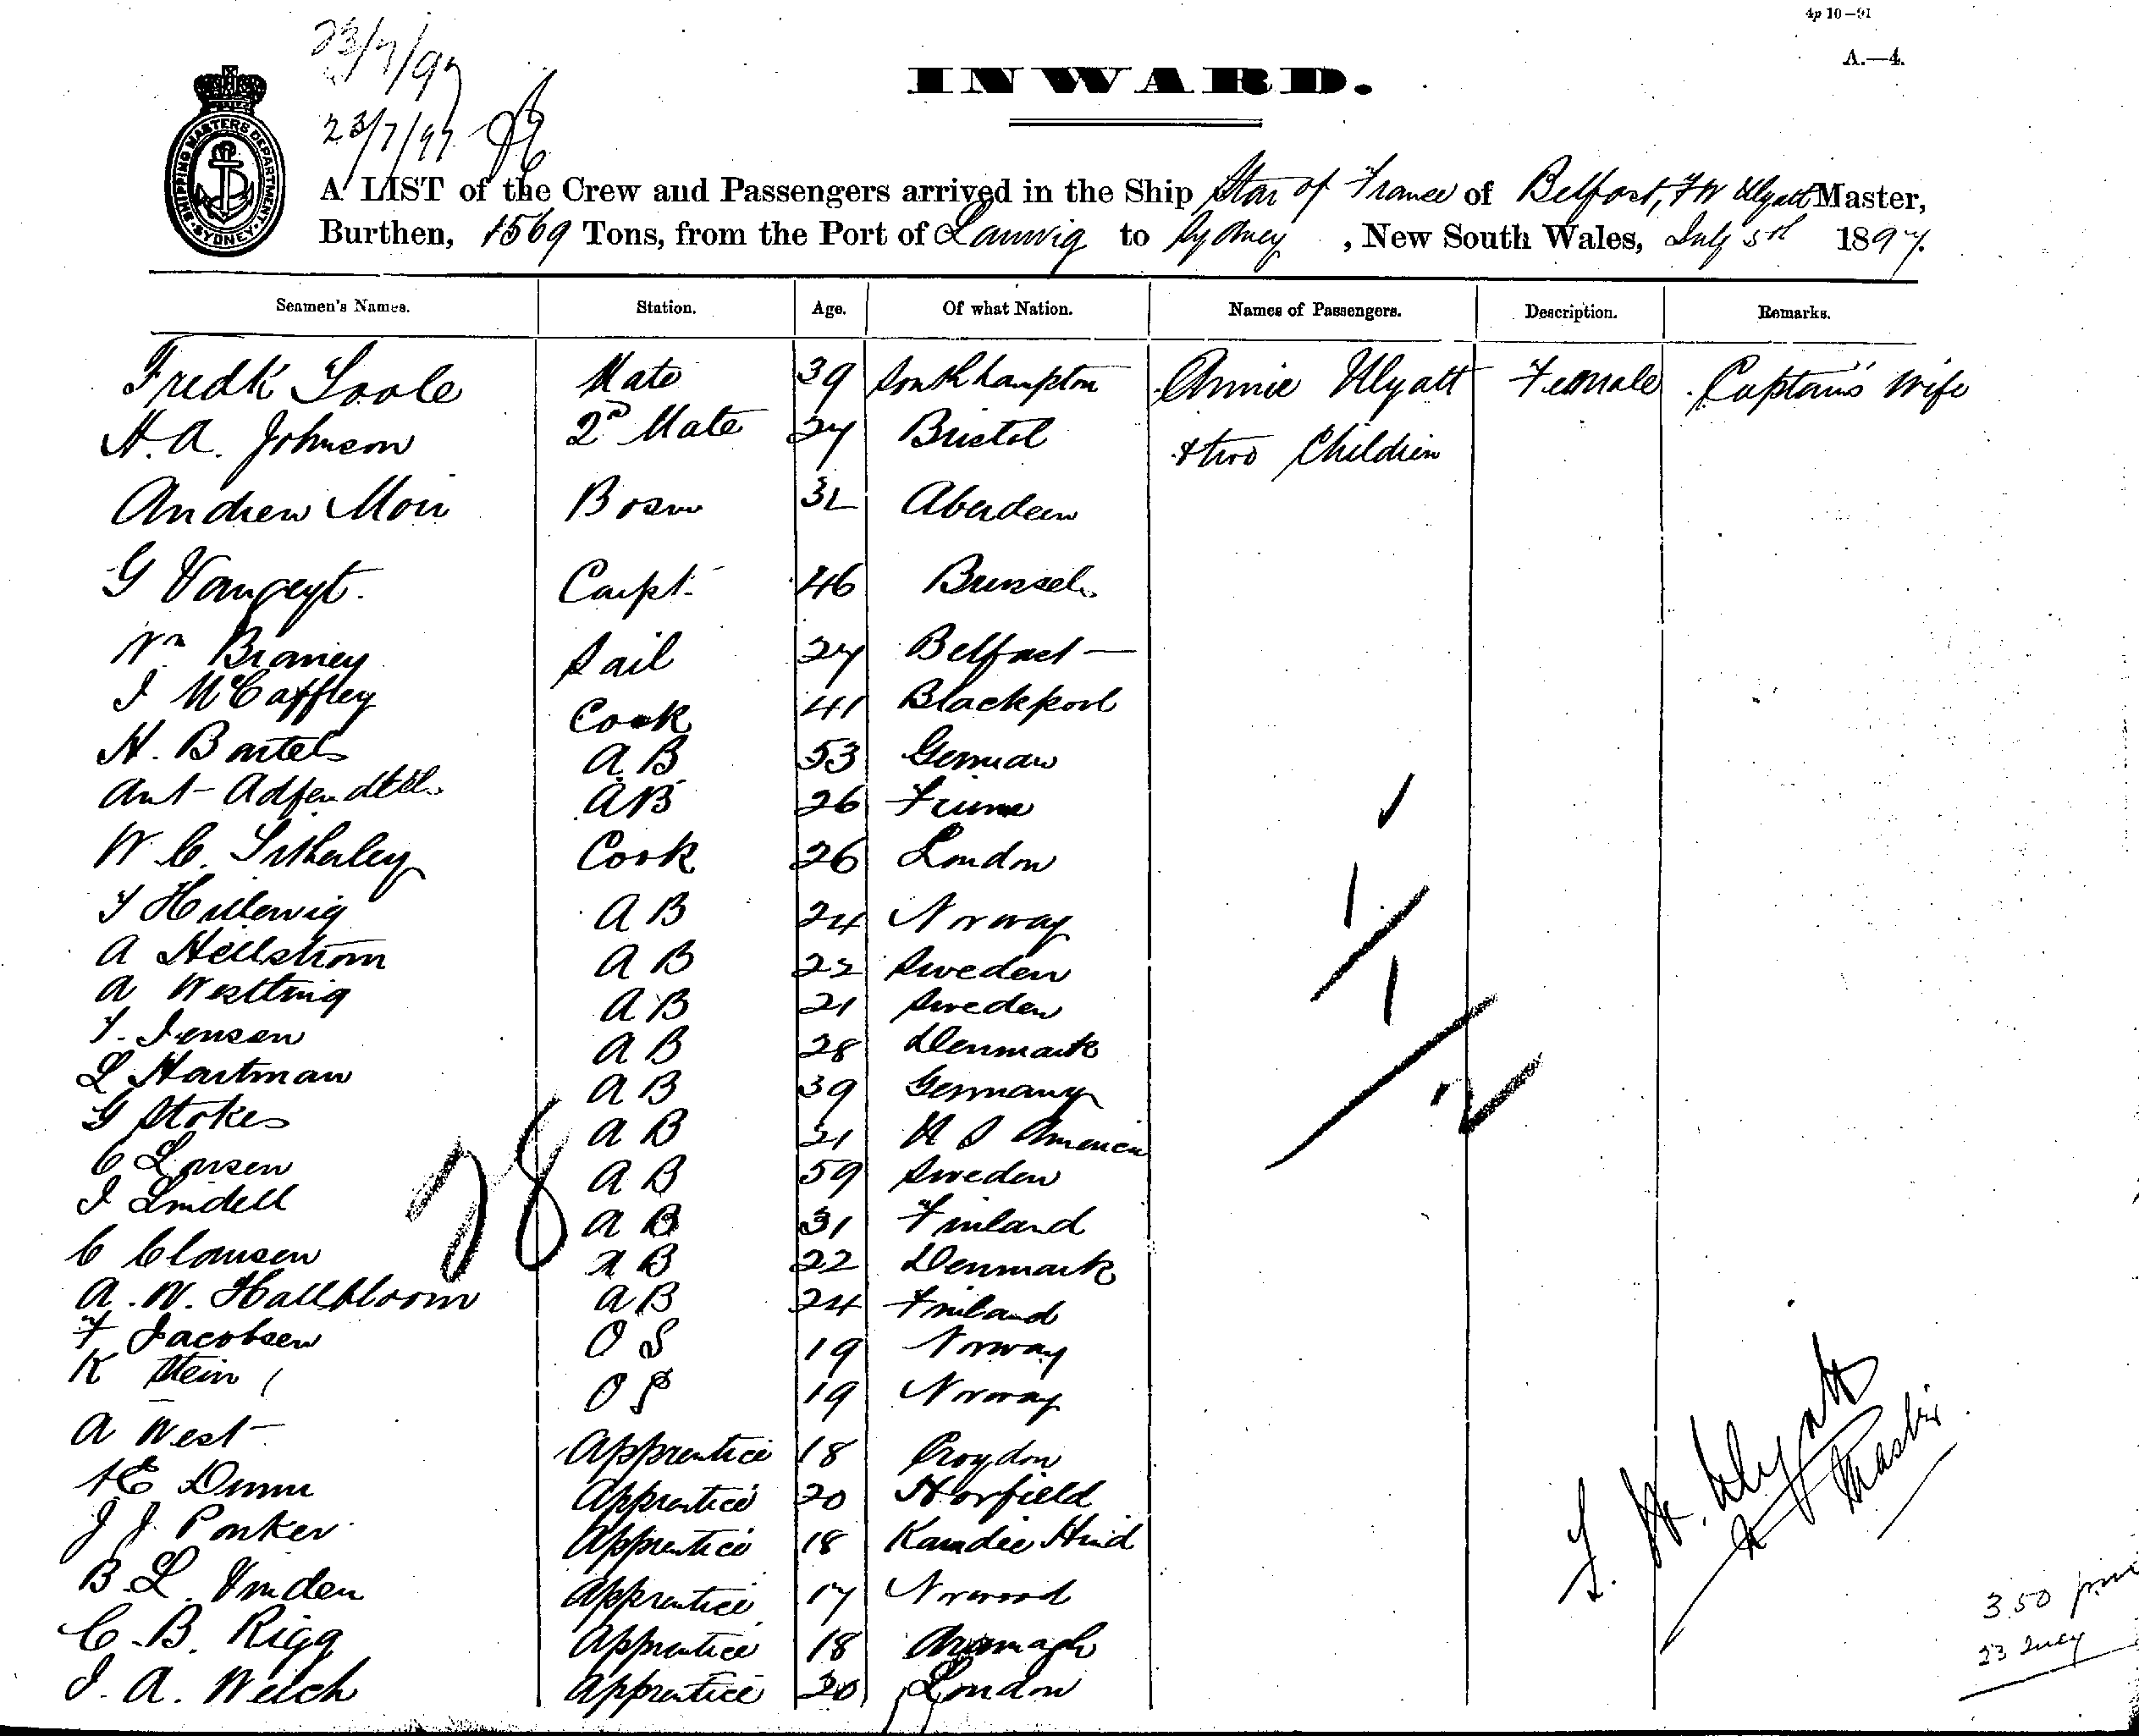 4p 10—91
A.—4.
23/7/97
23/7/97
INWARD.
SHIPPING MASTERS DEPARTMENT SYDNEY
A LIST of the Crew and Passengers arrived in the Ship Star of France of Belfast, FW Wyatt Master,
Burthen, 1569 Tons, from the Port of to Sydney, New South Wales, July 1897.
Seamen's Names. Station. Age. Of what Nation. Names of Passengers. Description. Remarks.
Fredk Toole Mate 39 Southhampton Annie Wyatt Female Captain's Wife
H. A. Johnson 2D Mate 27 Bristol & two Children
Andrew Moir Bosn 32 Aberdeen
G Carpt 46 Brussels
Wm Braney Sail 27 Belfast
J McCaffrey Cook 41 Blackpool
H. Bartels A B 53 German
Ant A B 26 Fiume
W. C. Cook 26 London
A B 24 Norway
A Hellstrom A B 22 Sweden
A Westling A B 21 Sweden
J. Jensen A B 28 Denmark
L Hartman A B 39 Germany
G Stokes A B 21 U S America
C Larsen A B 59 Sweden
J Lindell A B 31 Finland
C Clausen A B 22 Denmark
A. W. Hallbloom A B 24 Finland
F Jacobsen O S 19 Norway
K Stein O S 19 Norway
28
1
1
2
A West Apprentice 18 Croydon
Dunn Apprentice 20 Horfield
J J. Parker Apprentice 18 Hind
B. L. Vinden Apprentice 17 Norwood
C. B. Rigg Apprentice 18 Armagh
J. A. Welch Apprentice 20 London
F. W. Wyatt
Master
3.50 pm
23 July